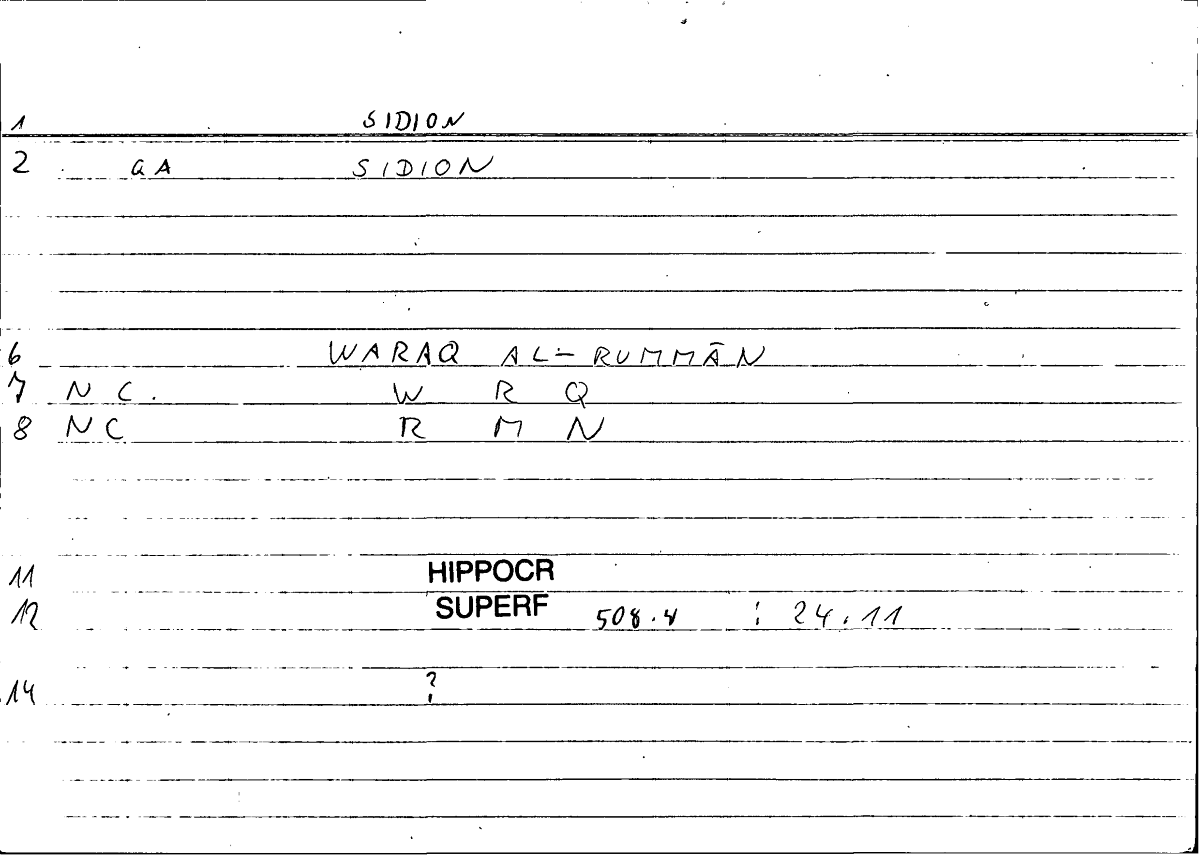 1 SIDION
2 GA SIDION
6 WARAQ AL-RUMMĀN
7 NC. W R Q
8 NC R M N
11 HIPPOCR
12 SUPERF 508.4 : 24.11
14 ?